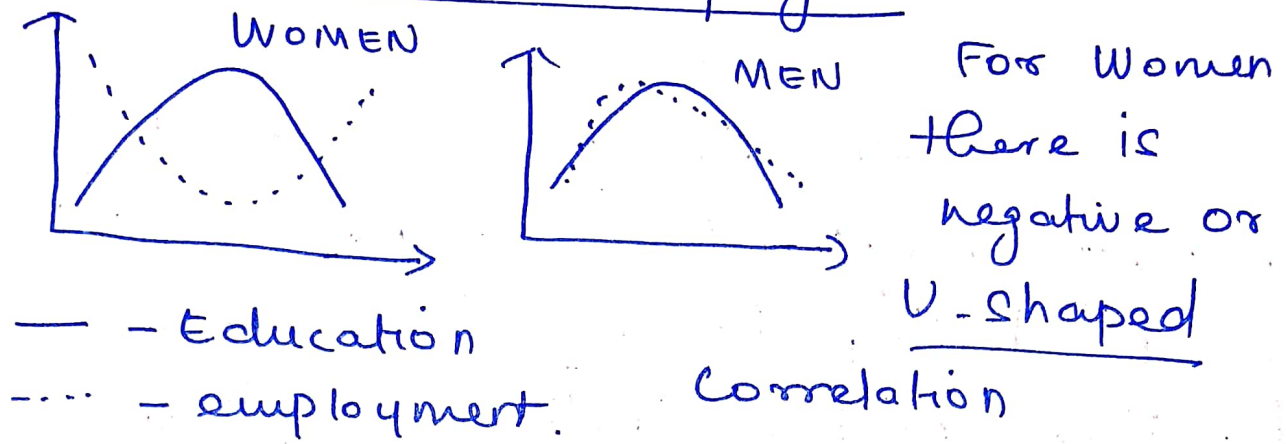 WOMEN
MEN
For Women
there is
negative or
U-shaped
Correlation
— - Education
---- - employment.